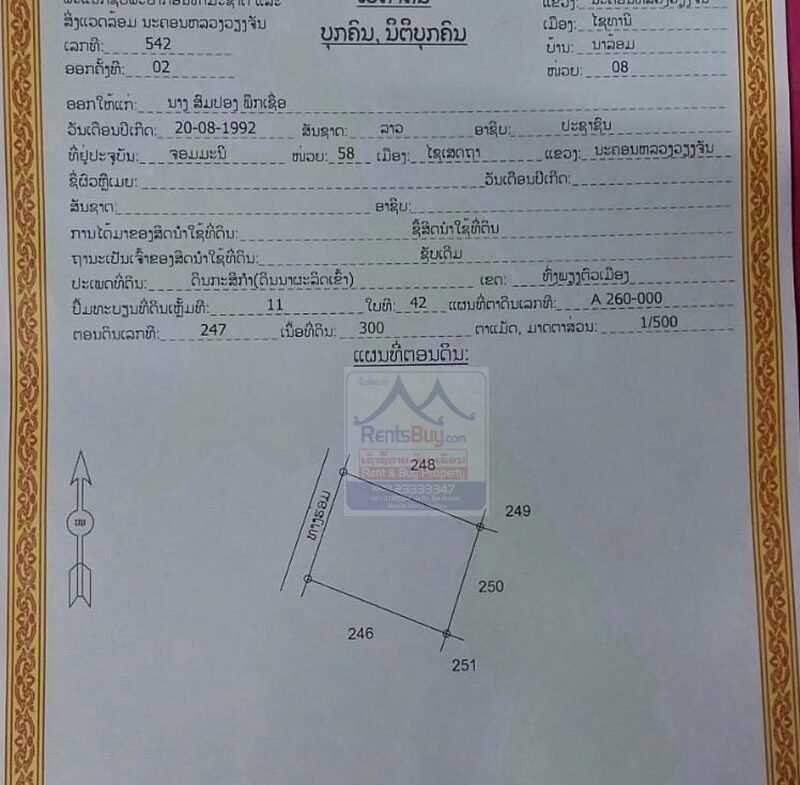 ສິ່ງແວດລ້ອມ ນະຄອນຫລວງວຽງຈັນ
ບຸກຄົນ, ນິຕິບຸກຄົນ
ເມືອງ: ໄຊທານີ
ເລກທີ: 542
ບ້ານ: ນາລ້ອມ
ອອກຄັ້ງທີ: 02
ໜ່ວຍ: 08
ອອກໃຫ້ແກ່: ນາງ ສົມປອງ ພຶກເຊື່ອ
ວັນເດືອນປີເກີດ: 20-08-1992 ສັນຊາດ: ລາວ ອາຊີບ: ປະຊາຊົນ
ທີ່ຢູ່ປະຈຸບັນ: ຈອມມະນີ ໜ່ວຍ: 58 ເມືອງ: ໄຊເສດຖາ ແຂວງ: ນະຄອນຫລວງວຽງຈັນ
ຊື່ຜົວຫຼືເມຍ: ວັນເດືອນປີເກີດ:
ສັນຊາດ: ອາຊີບ:
ການໄດ້ມາຂອງສິດນຳໃຊ້ທີ່ດິນ: ຊື້ສິດນຳໃຊ້ທີ່ດິນ
ຖານະເປັນເຈົ້າຂອງສິດນຳໃຊ້ທີ່ດິນ: ຊັບເດີມ
ປະເພດທີ່ດິນ: ດິນກະສິກຳ(ດິນນາຜະລິດເຂົ້າ) ເຂດ: ທົ່ງພຽງຕົວເມືອງ
ປຶ້ມທະບຽນທີ່ດິນເຫຼັ້ມທີ: 11 ໃບທີ: 42 ແຜນທີ່ຕາດິນເລກທີ: A 260-000
ຕອນດິນເລກທີ: 247 ເນື້ອທີ່ດິນ: 300 ຕາແມັດ, ມາດຕາສ່ວນ: 1/500
ແຜນທີ່ຕອນດິນ:
RentsBuy.com
Rent & Buy Property
23333347
248
249
ທາງຮອມ
250
246
251